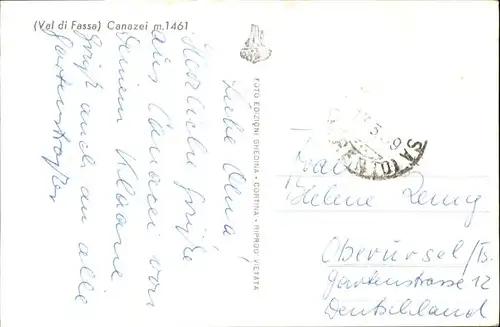 (Val di Fassa) Canazei m.1461
Liebe Oma!
Herzliche Grüße
aus Canacei von
Deinem Klaane
Grüß auch an alle
Gartenstraßler
FOTO EDIZIONI GHEDINA - CORTINA - RIPROD. VIETATA
Frau
Helene
Oberursel/Ts.
Gartenstrasse 12
Deutschland